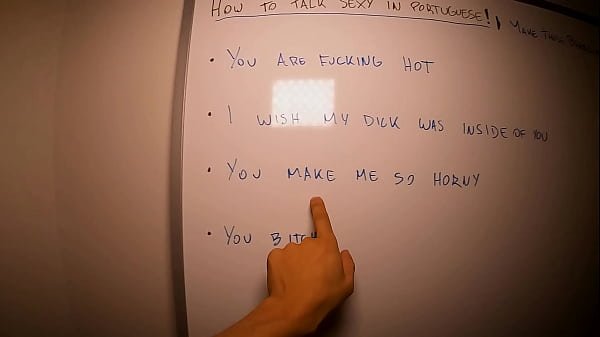 HOW TO TALK SEXY IN PORTUGUESE! MAKE THOSE
• YOU ARE FUCKING HOT
• I WISH MY DICK WAS INSIDE OF YOU
• YOU MAKE ME SO HORNY
• YOU BITCH